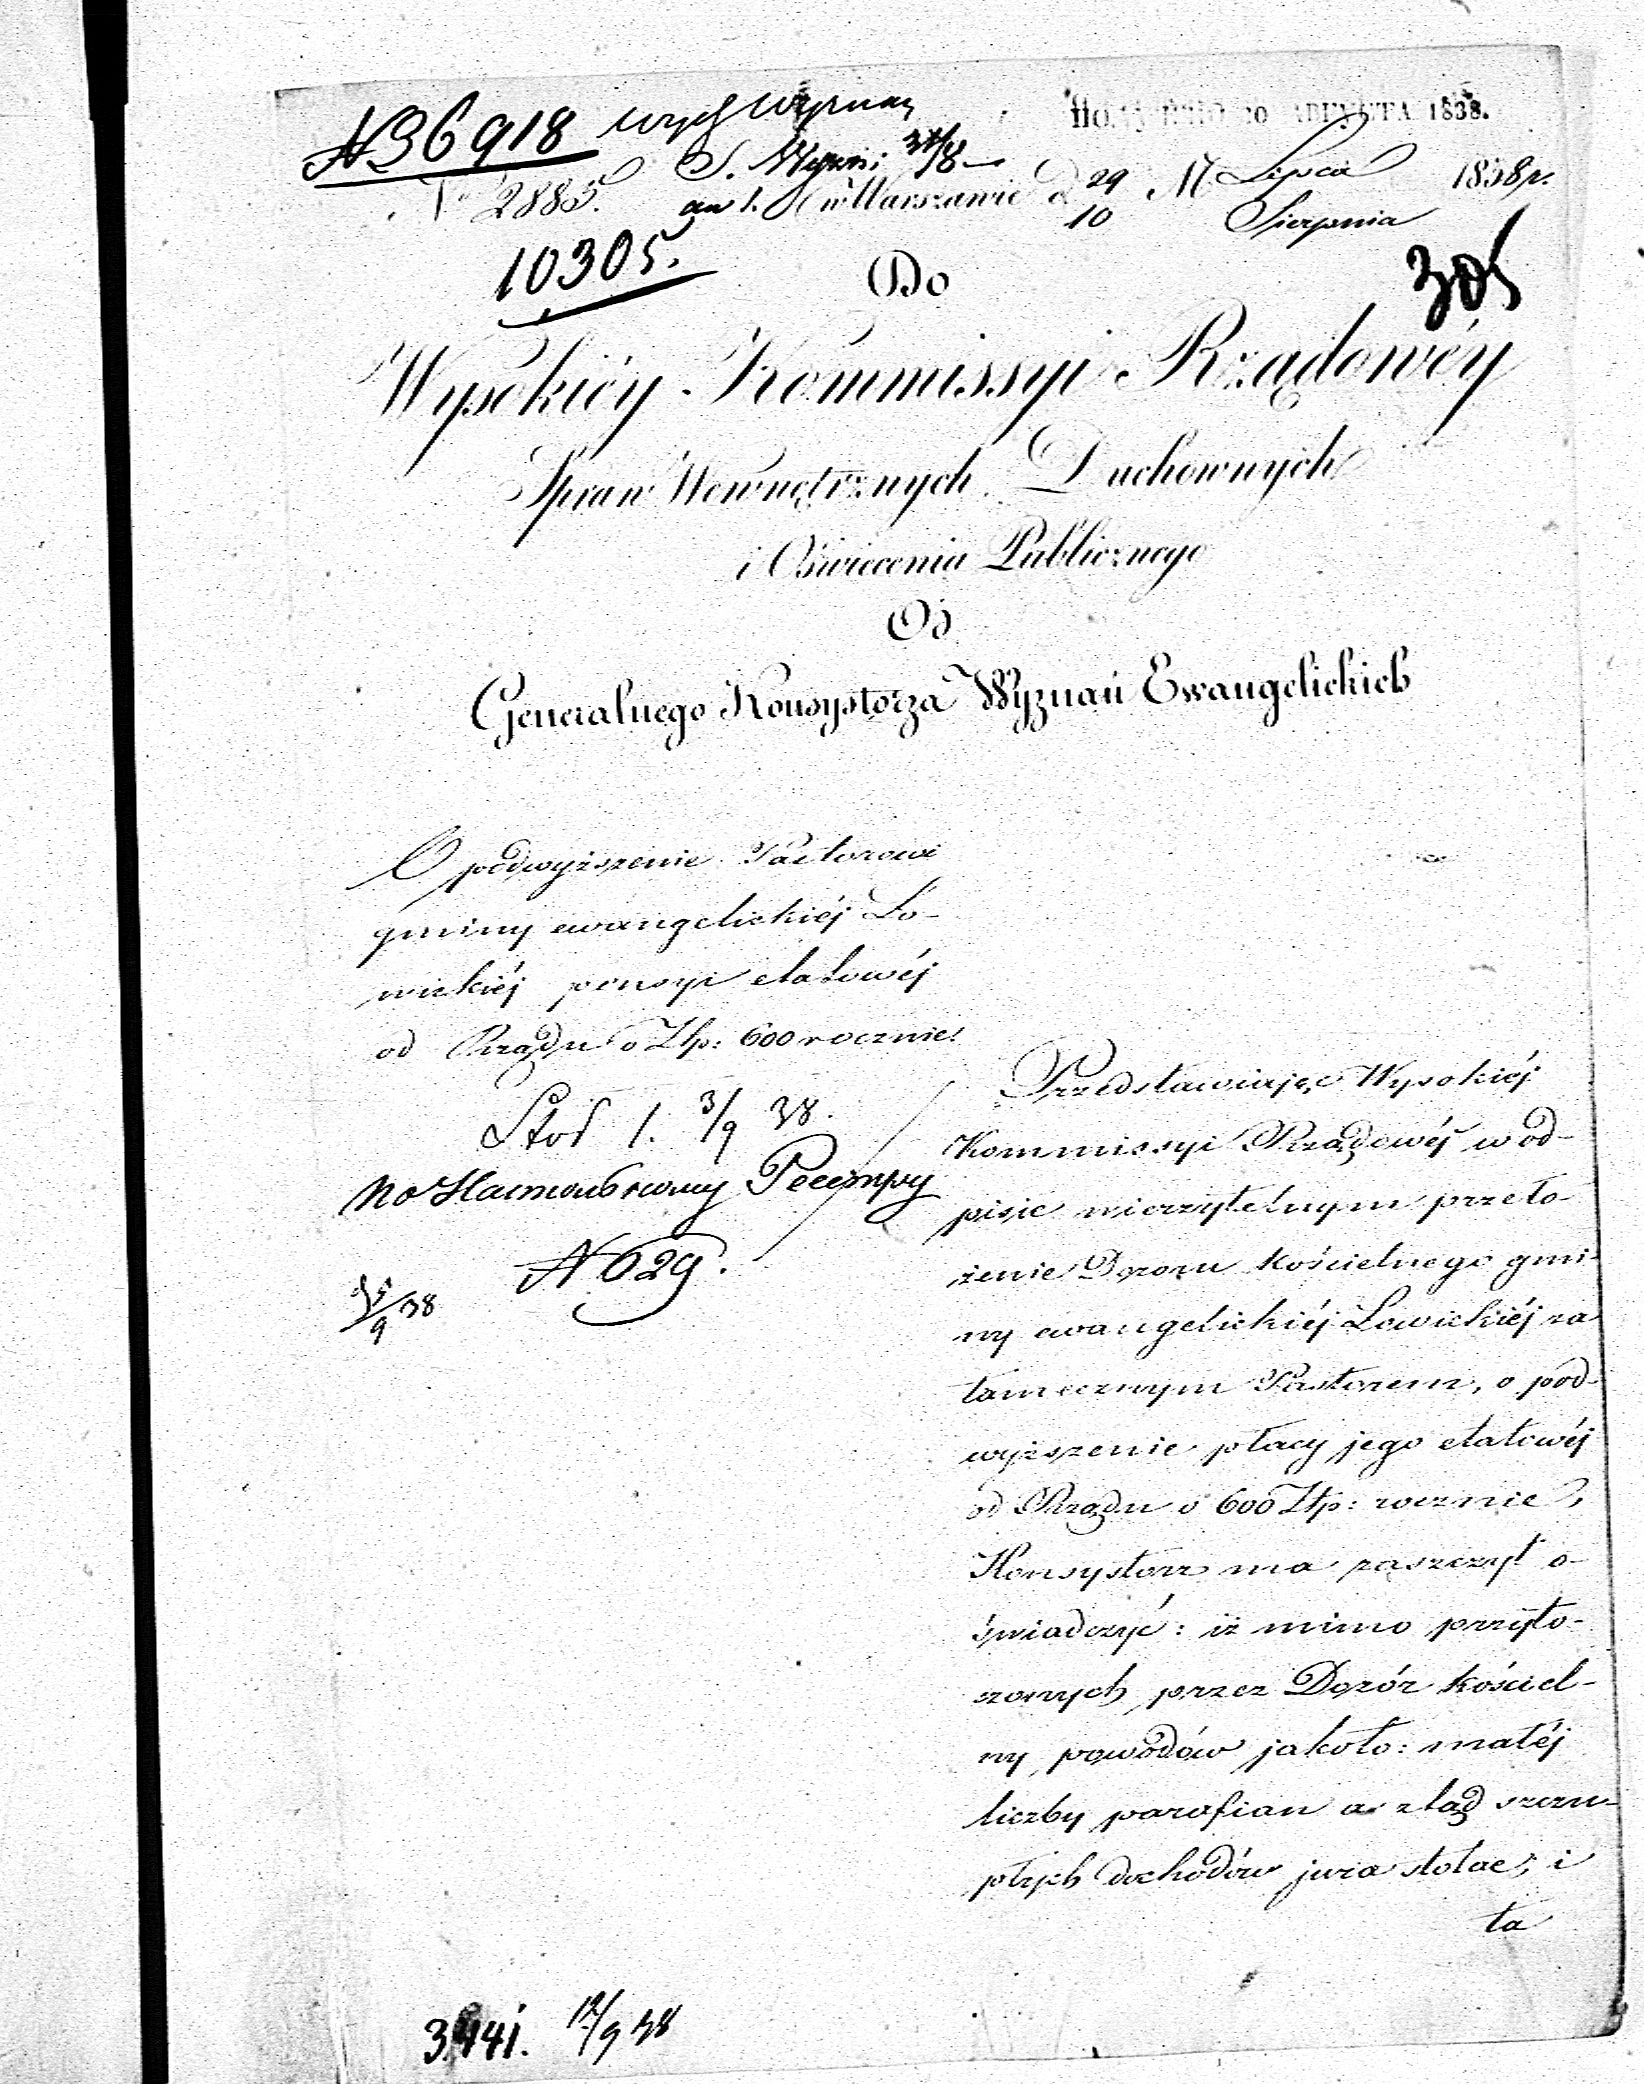 N 36918
1838.
No 2885. w Warszawie d 29/10 M Lipca/Sierpnia 1838 r.
10305.
305
Do
Wysokiéy Kommissyi Rządowéy
Spraw Wewnętrznych Duchownych
i Oświecenia Publicznego
Od
Generalnego Konsystorza Wyznań Ewangelickich
O podwyższenie Pastorowi
gminy ewangelickiéj Ło-
wickiéj pensyi etatowéj
od Rządu o Złp: 600 rocznie.
3/9 38.
N 629.
5/9 38
Przedstawiając Wysokiéj
Kommissyi Rządowéj w od-
pisie wierzytelnym przeło-
żenie Dozoru kościelnego gmi-
ny ewangelickiéj Łowickiéj za
tamecznym Pastorem, o pod-
wyższenie płacy jego etatowéj
od Rządu o 600 Złp: rocznie,
Konsystorz ma zaszczyt o-
świadczyć: iż mimo przyto-
czonych przez Dozór kościel-
ny powodów jakoto: małéj
liczby parafian a ztąd szczu-
płych dochodów jura stolae, i
ta
3441. 12/9 38